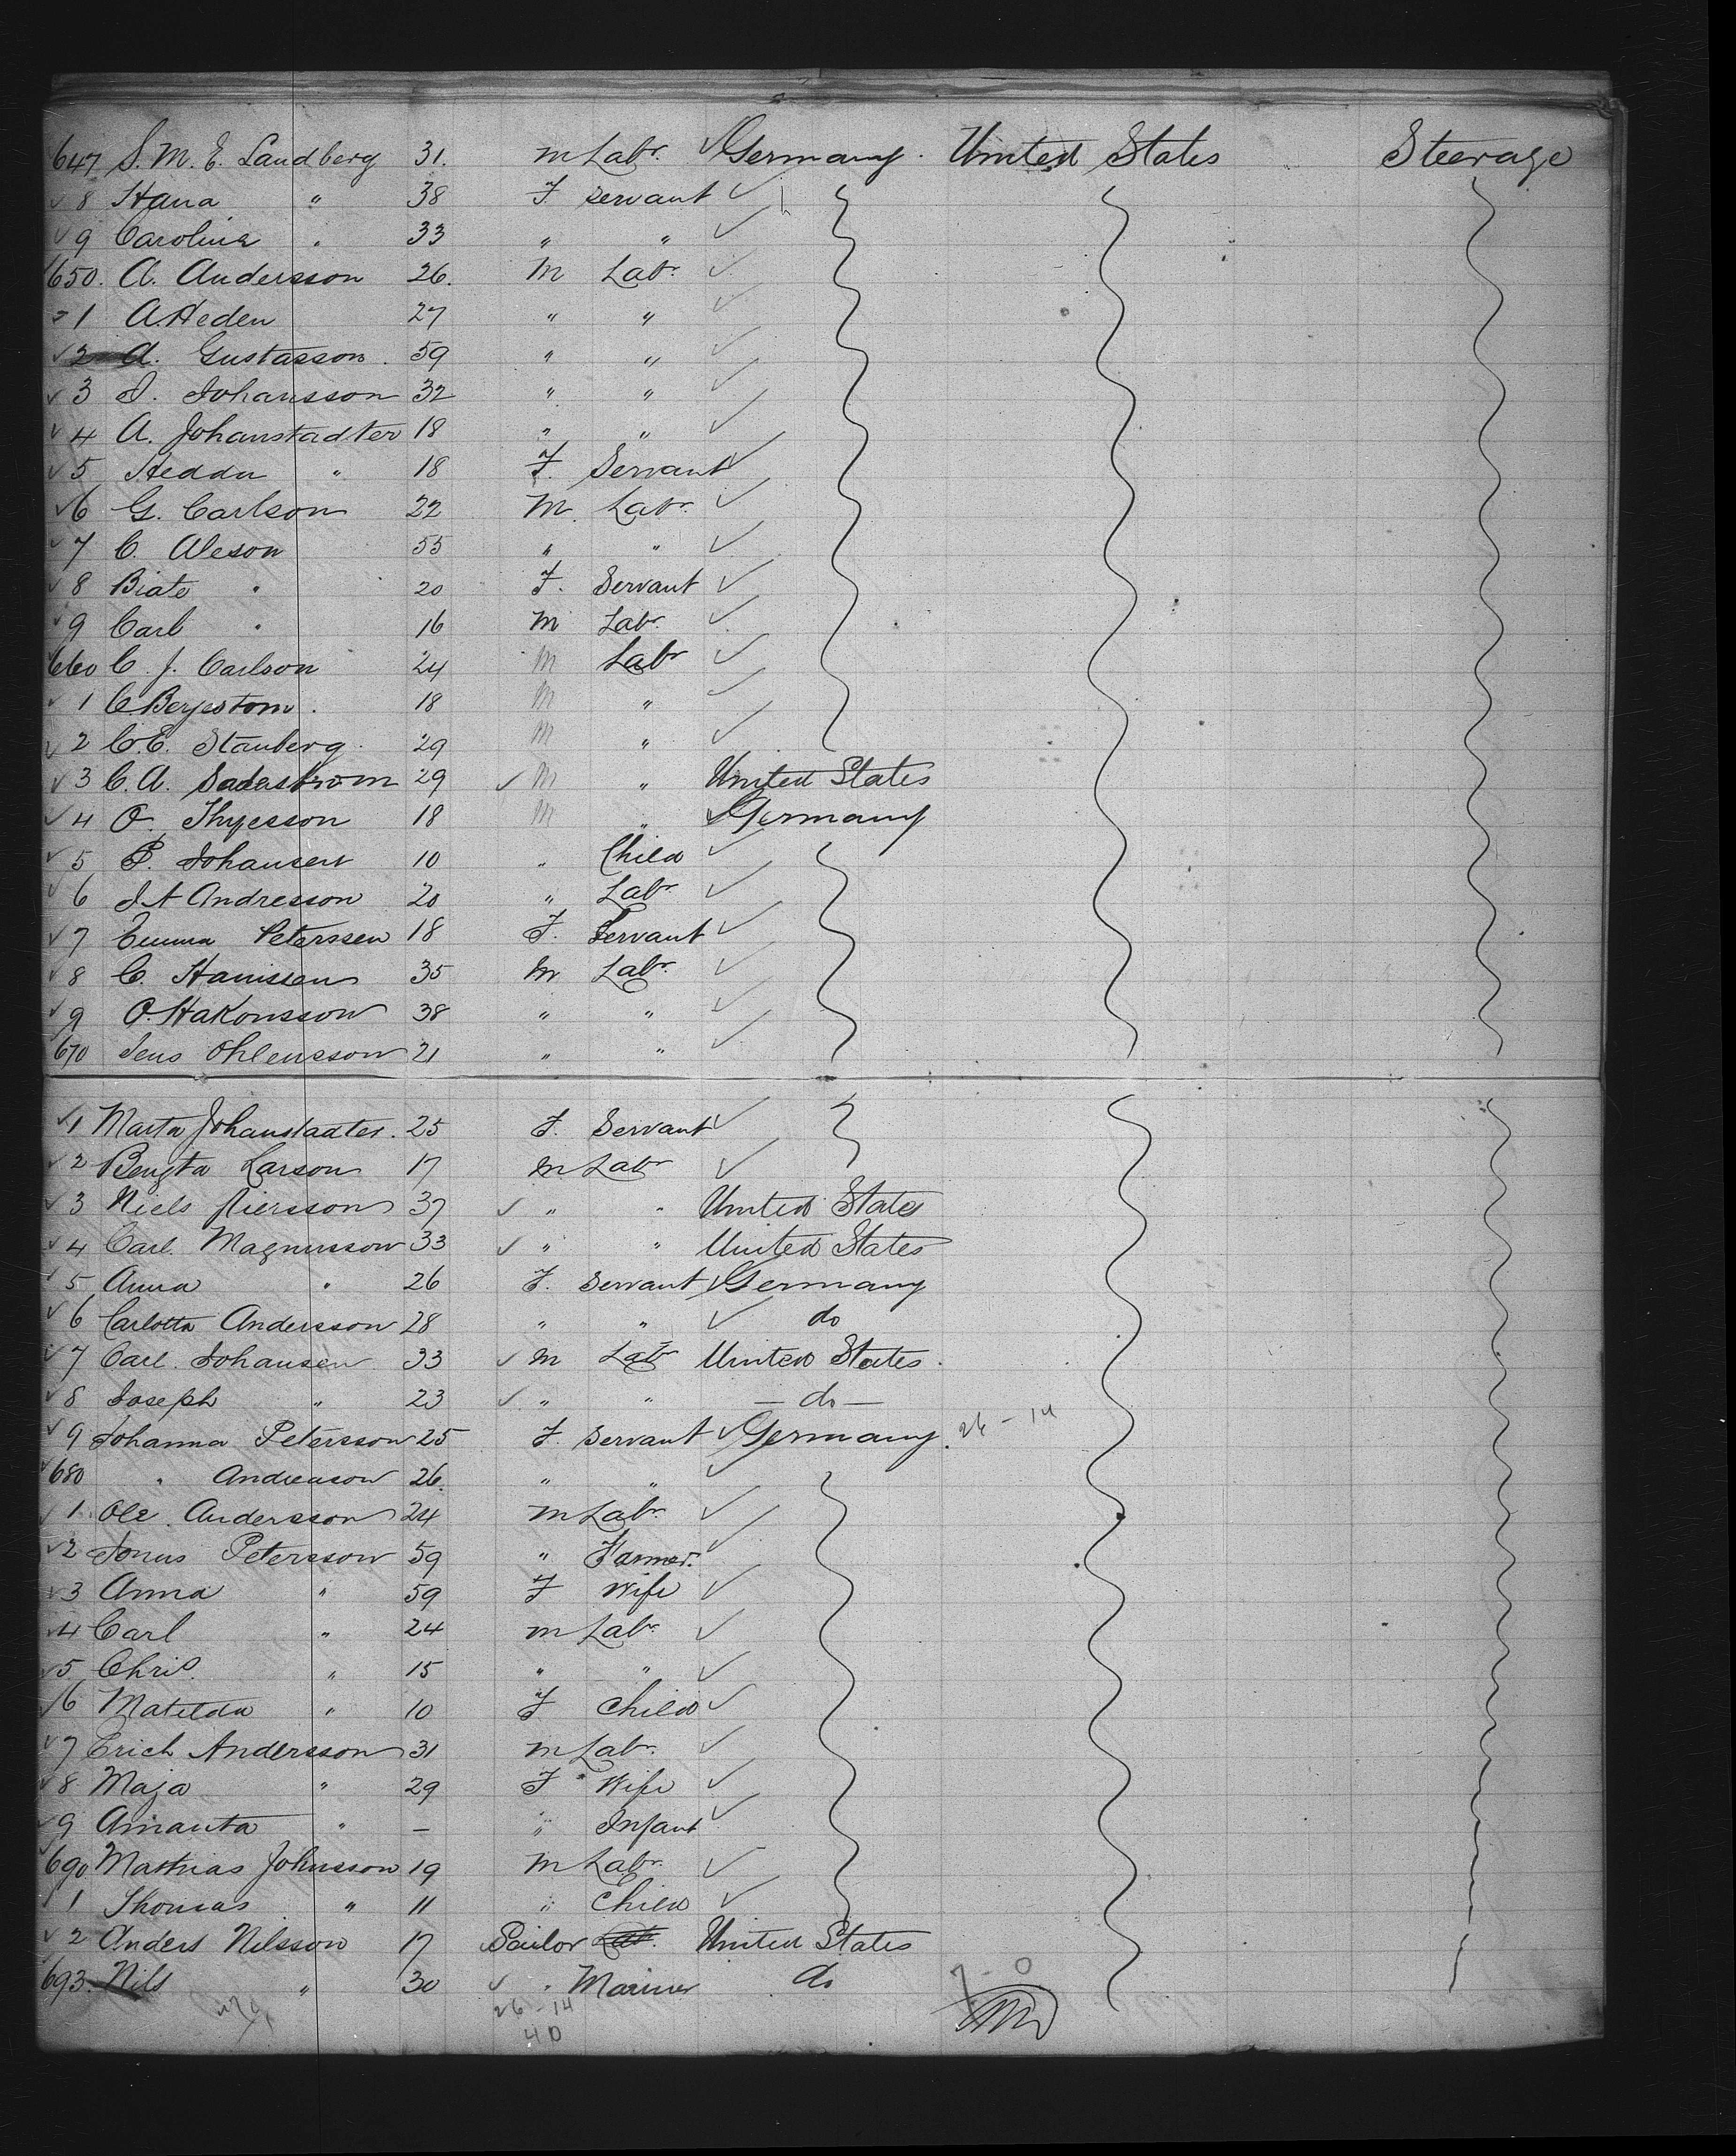 647 S. M. E. Landberg 31. m Labr. Germany. United States Steerage
8 Hana " 38 F servant
9 Caroline " 33 " "
650. A. Andersson 26. M Labr.
1 A. Heden 27 " "
2 A. Gustasson. 59 " "
3 J. Johansson 32 " "
4 A. Johanstadter 18 " "
5 Hedda " 18 F. Servant
6 G. Carlson 22 M. Labr.
7 C. Oleson 55 " "
8 Biate " 20 F. Servant
9 Carl " 16 M Labr.
660 C. J. Carlson 24 M Labr
1 C Berjestom. 18 M "
2 C. E. Stanberg. 29 M "
3 C. A. 29 M " United States
4 O. Thyesson 18 M " Germany
5 P. Johansen 10 " Child
6 J. A Andresson 20 " Labr.
7 Emma Peterssen 18 F. Servant
8 C. Hanissen 35 M Labr.
9 O. Hakonsson 38 " "
670 Jens Ohlensson 21 " "
1 Marta Johanstadter. 25 F. Servant
2 Bengta Larson 17 M Labr
3 Niels 37 " " United States
4 Carl. Magnusson 33 " " United States
5 Anna " 26 F. Servant Germany
6 Carlotta Andersson 28 " " do
7 Carl. Johansen 33 M Labr United States.
8 Joseph " 23 " " — do —
9 Johanna Petersson 25 F. Servant Germany. 26 - 14
680 " Andreason 26. " "
1. Ole. Andersson 24 m Labr.
2 Jonus Petersson 59 " Farmer.
3 Anna " 59 F Wife
4 Carl " 24 m Labr.
5 Chris. " 15 " "
6 Matilda " 10 F Child
7 Erich Andersson 31 m Labr.
8 Maja " 29 F Wife
9 Amanta " — " Infant
690 Mathias Johnsson 19 m Labr.
1 Thomas " 11 " Child
2 Anders Nilsson 17 Sailor Lab. United States
693. Nils " 30 " Mariner do
26 - 14 7 - 0
40